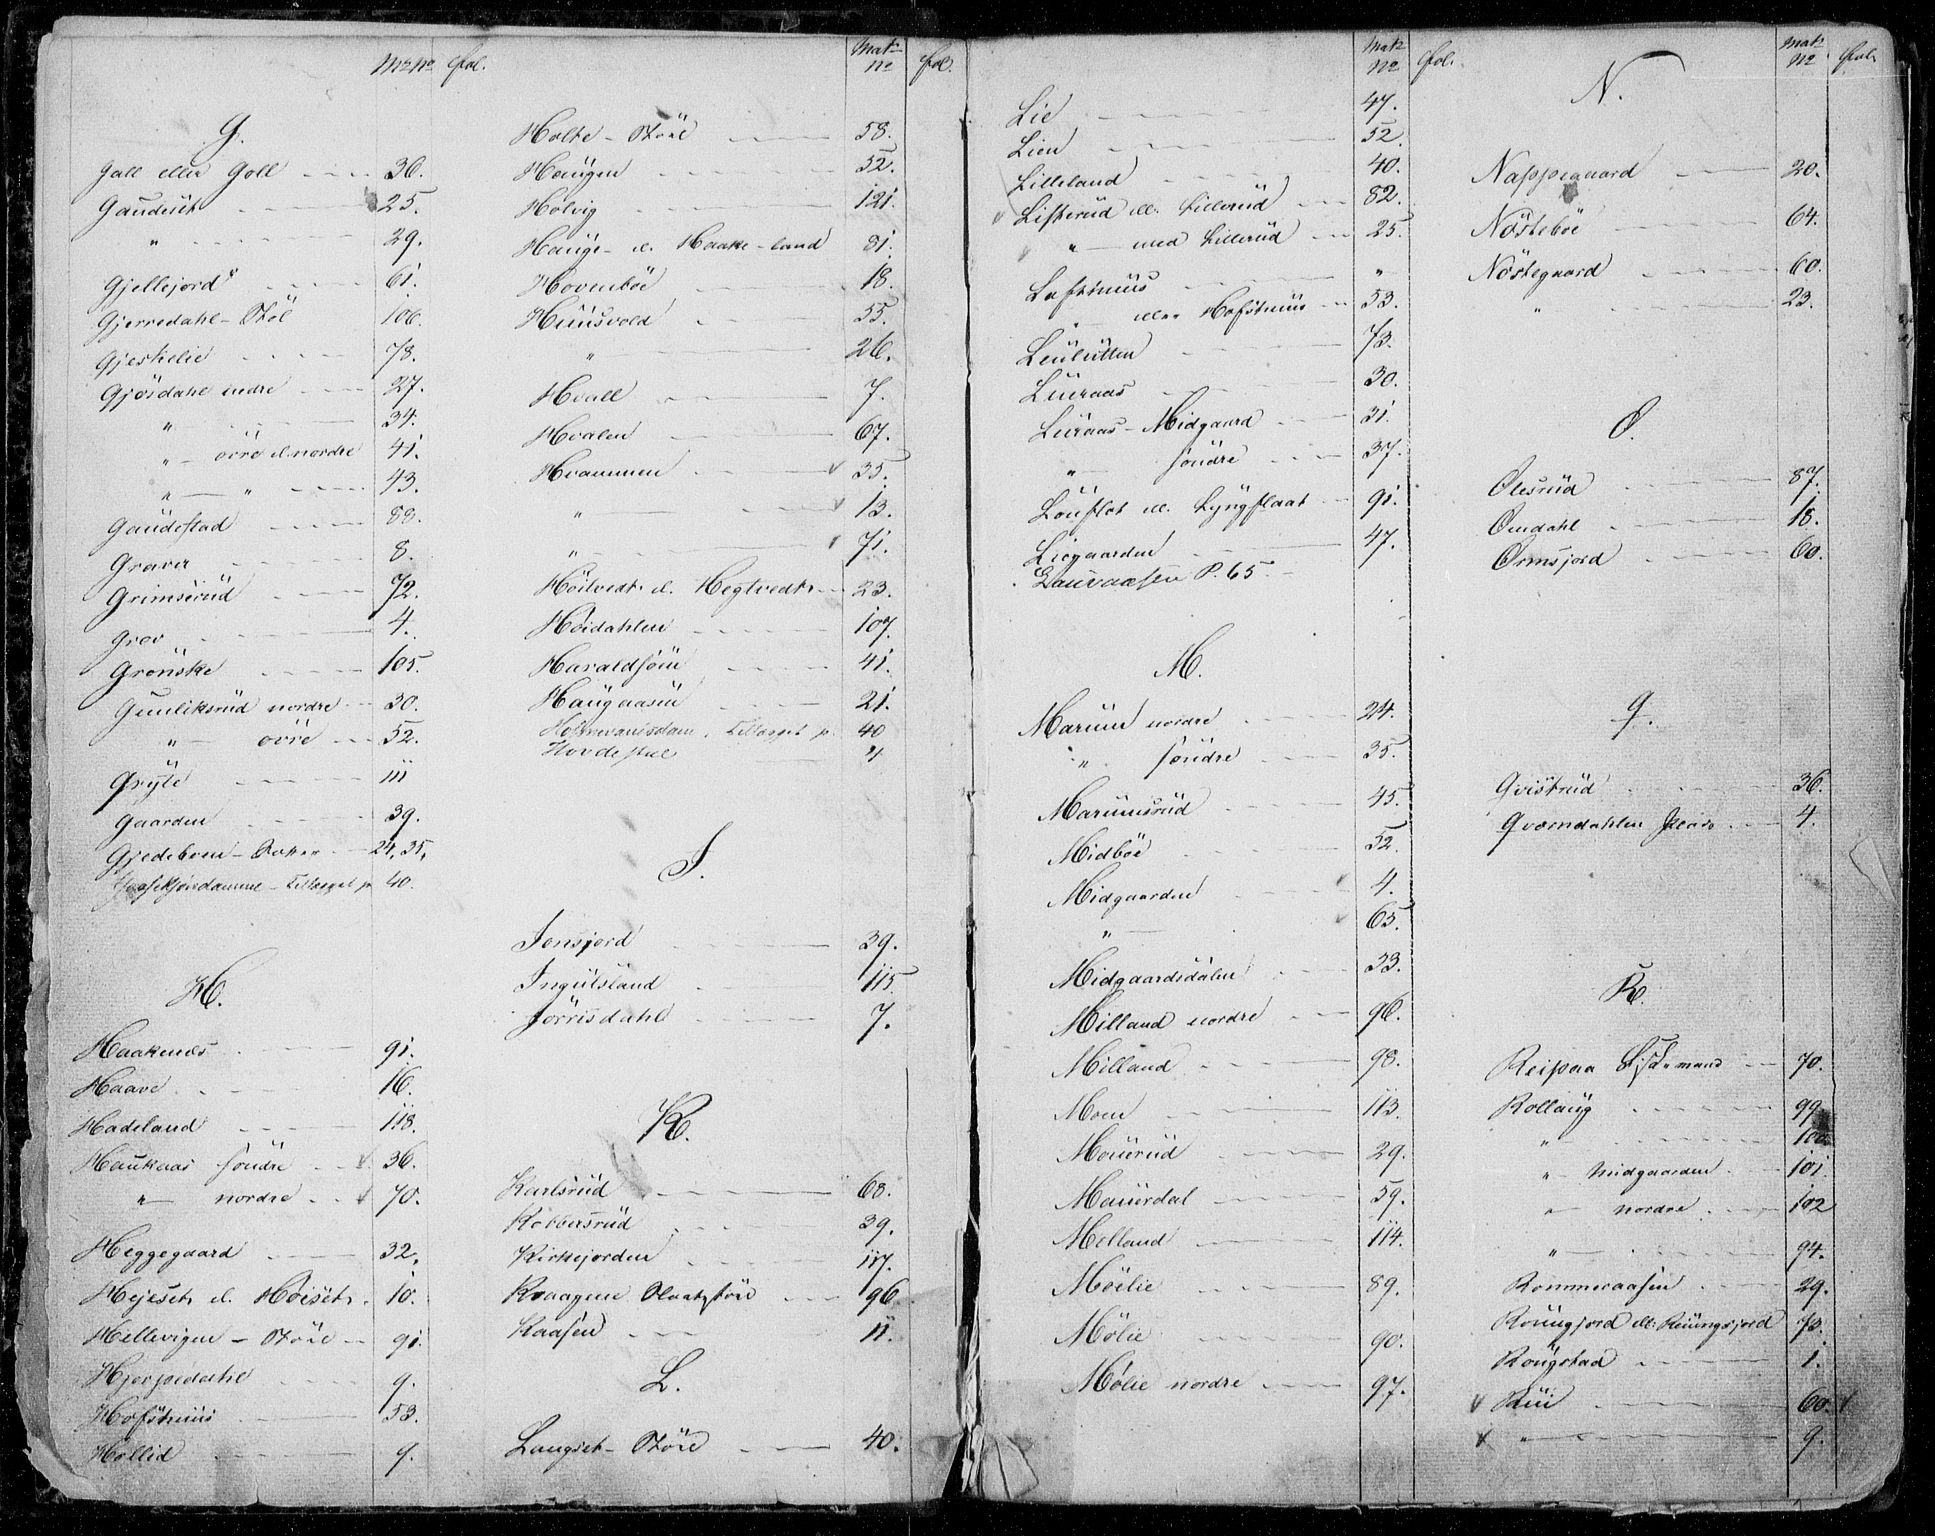 Mr No Fol.
G.
Gall eller Goll 36.
Gaudeset 25.
" 29.
Gjellejord 61.
Gjerredahl-Stöl 106.
Gjeskelie 78.
Gjösdahl indre 27.
" 34.
" övre el. nordre 41.
" " 43.
Gaudestad 88.
Graver 8.
Grimserud 72.
Grov 4.
Grönske 105.
Gunliksrud nordre 30.
" övre 52.
Gryte 111
Gaarden 39.
Gjedeboen 24, 35,
Tillægget p 40.
H.
Haakenæs 91.
Haave 16.
Hadeland 118.
Haukaas söndre 36.
" nordre 70.
Heggegaard 32.
Hejeset el. Höiset 10.
Hellevigen - Störe 91.
Hjerpedahl 9.
Hofstuus 53.
Höllid 9.
Matr No Fol.
Holte-Störe 58.
Haugen 52.
Hölvig 121.
Hauge- el. Haake-land 81.
Hovenböe 18.
Huusvold 55.
" 26.
Hvall 7.
Hvalen 67.
Hvammen 35.
" 13.
" 71.
Höitvedt el. Hegtvedt 23.
Höidahlen 107.
Haraldsöin 41.
Haugaasen 21.
Tillægget p. 40
Hovdestul 4
I.
Jonsjord 39.
Ingulsland 115.
Jörrisdahl 7.
K.
Karlsrud 68.
Kobbersrud 39.
Kirkejorden 117.
Kraagene 96
Kaasen 11.
L.
Langset-Störe 40.
Matr No Fol.
Lie 47.
Lien 52.
Lilleland 40.
Listerud ell. Lillerud 82.
" med Lillerud 25.
Loftsuus "
" eller Hofstuus 53.
Leulutten 73.
Luraas 30.
Luraas-Midgaard 31.
" söndre 37.
Löuflot ell. Lyngflaat 91.
Liegaarden 47.
Lauraasen P. 65.
M.
Marum nordre 24.
" söndre 35.
Marumsrud 45.
Midböe 52.
Midgaarden 4.
" 65.
Midgaardsdalen 33.
Milland nordre 96.
Milland 98.
Moen 113.
Mourud 29.
Maurdal 59.
Molland 114.
Möelie 89.
Mølie 90.
Mølie nordre 97.
Matr No Fol.
N.
Nappegaard 20.
Nösteböe 64.
Nöstegaard 60.
" 23.
O.
Olesrud 87.
Omdahl 18.
Ormsjord 60.
Q.
Qvistrud 36.
Qvomdahlen 4.
R.
Reipaa 70.
Rollaug 99
" 100
" Midgaarden 101
" nordre 102
" 94.
Rommeraasen 29.
Roungjord ell: Reungsjord 73.
Rougstad 1.
Rui 60.
" 9.